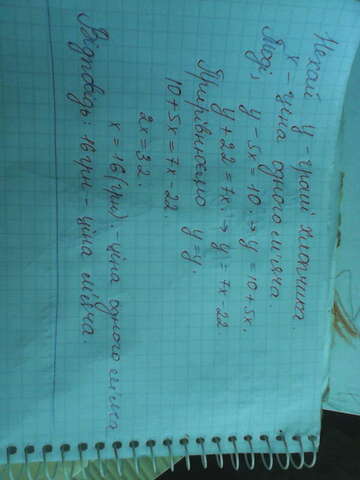 Нехай y - гроші хлопчика
x - ціна одного м'яча.
Тоді,
y - 5x = 10. → y = 10 + 5x.
y + 22 = 7x. → y = 7x - 22.
Прирівнюємо y = y.
10 + 5x = 7x - 22.
2x = 32.
x = 16 (грн) - ціна одного м'яча
Відповідь: 16 грн - ціна м'яча.